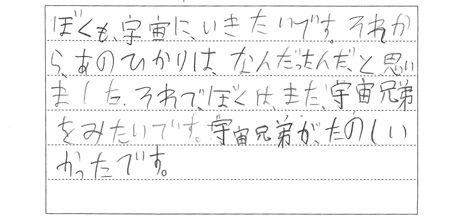 ぼくも、宇宙に、いきたいです。それか
ら、あのひかりは、なんだったんだ、と思い
ました。それで、ぼくは、まだ、宇宙兄弟
をみたいです。宇宙兄弟が、たのしい
かったです。